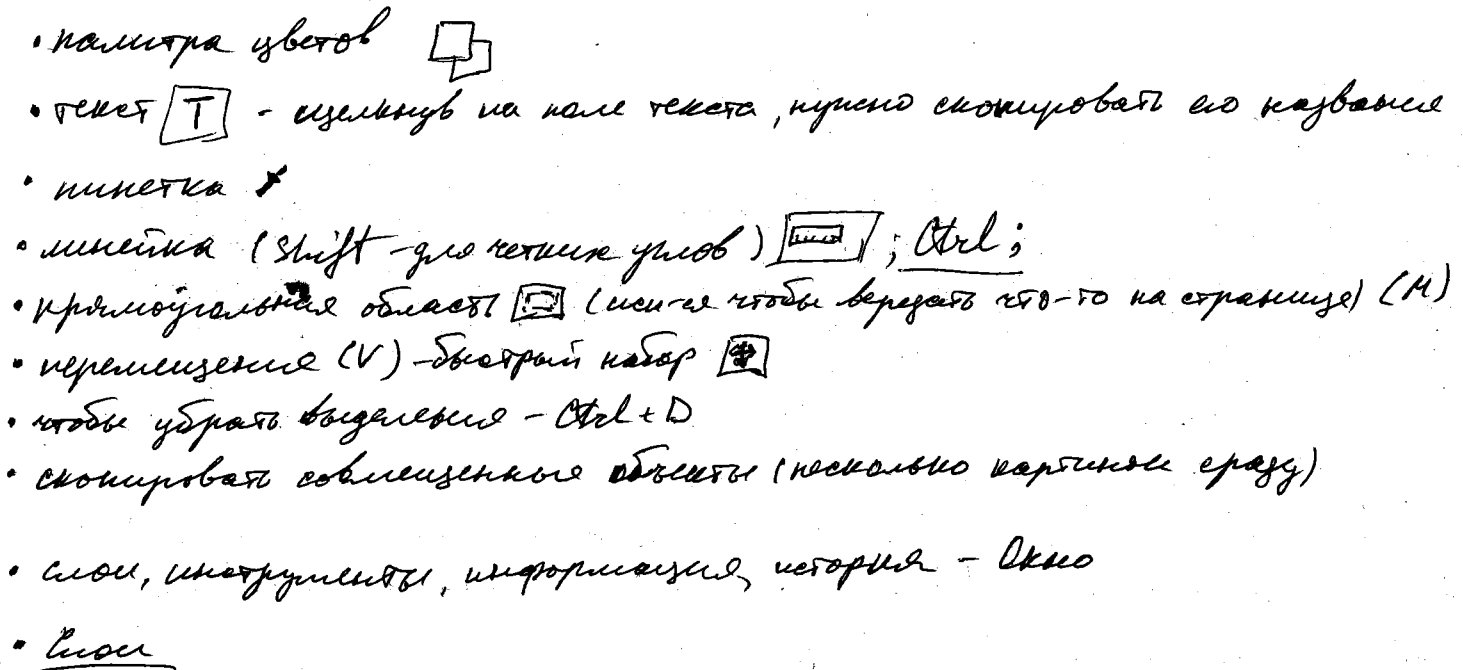 • палитра цветов
• текст T - щелкнув на поле текста, нужно скопировать его название
• пипетка
• линейка (Shift - для четких углов) ; Ctrl ;
• прямоугольная область (исп-ся чтобы вырезать что-то на странице) (M)
• перемещения (V) - быстрый набор
• чтобы убрать выделения - Ctrl + D
• скопировать совмещенные объекты (несколько картинок сразу)
• слои, инструменты, информация, история - Окно
• Слои